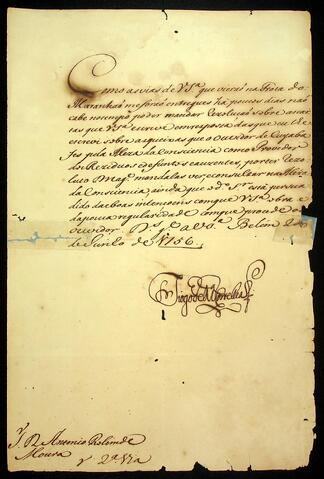 Como as vias de V S.ª que vieraõ na Frota do
Maranhaõ me foraõ entregues há poucos dias naõ
cabe no tempo poder mandar a rezoluçaõ sobre a car
tas que V S.ª escreve em reposta das que eu lhe
escrevi sobre as queixas que o ouvidor do Cuyabá
fes pela Meza da Consciencia como Provedor
dos Reziduos defuntos e auzentes, por ter rezo
luto S Mag.e mandalas ver, e consultar na Meza
da Consciencia, ainda que o d.º S.r está persua
dido das boas intencoeis com que V S.ª obra e
da pouca regularidade com que procede o
ouvidor D.s g.e a V S.ª Belem 2
de Junho de 1756.
Diogo de M
S.r D. Antonio Rolim de
Moura
2.ª Via